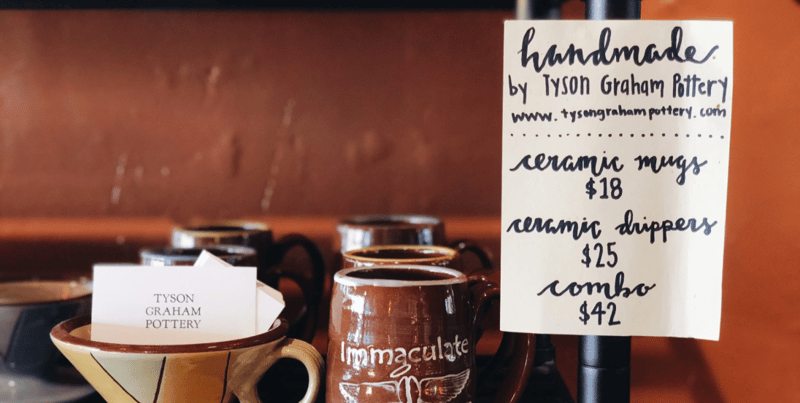 handmade
by Tyson Graham Pottery
www.tysongrahampottery.com
ceramic mugs
$18
ceramic drippers
$25
combo
$42
TYSON
GRAHAM
POTTERY
Immaculate